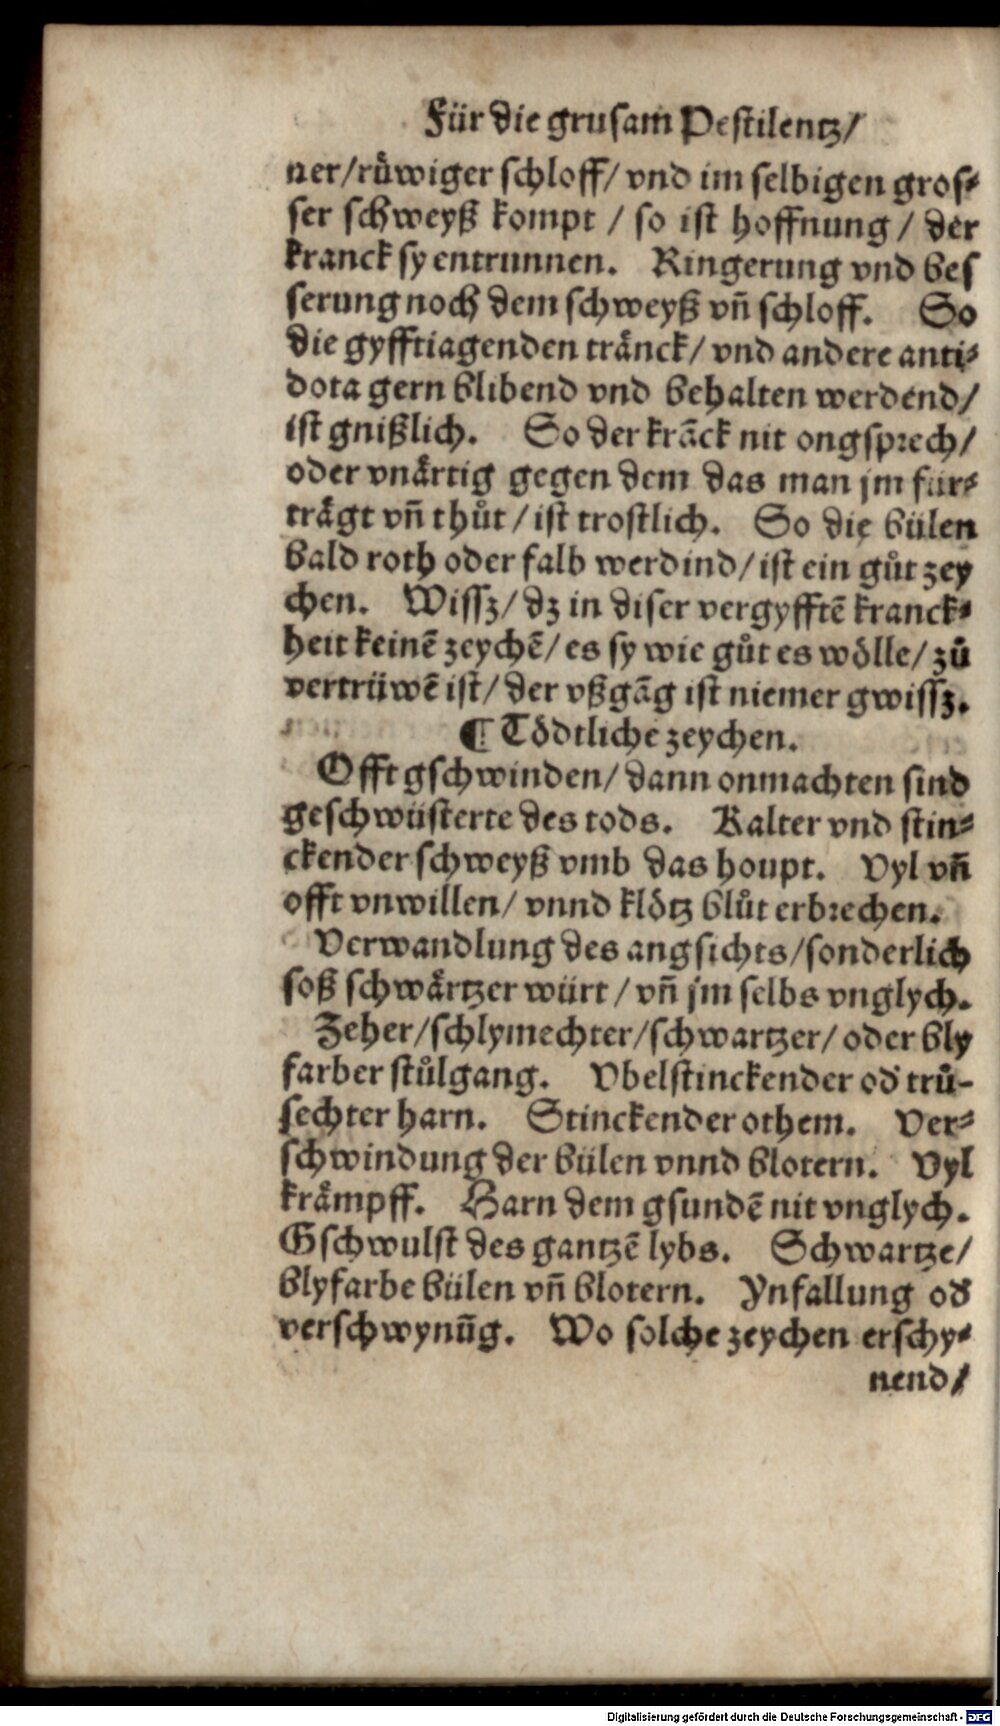 Für die grusam Pestilentz/
ner/rüwiger schloff/ vnd im selbigen gros⸗
ser schweyß kompt / so ist hoffnung / der
kranck sy entrunnen. Ringerung vnd bes
serung noch dem schweyß vñ schloff. So
die gyfftiagenden tränck/ vnd andere anti⸗
dota gern blibend vnd behalten werdend/
ist gnißlich. So der krãck nit ongsprech/
oder vnärtig gegen dem das man jm für⸗
trägt vñ thůt / ist trostlich. So die bülen
bald roth oder falb werdind/ ist ein gůt zey
chen. Wissz/ dz in diser vergyfftẽ kranck⸗
heit keinẽ zeychẽ/ es sy wie gůt es wölle/ zů
vertrüwẽ ist/ der vßgãg ist niemer gwissz.
¶ Tödtliche zeychen.
Offt gschwinden/ dann onmachten sind
geschwüsterte des tods. Kalter vnd stin⸗
ckender schweyß vmb das houpt. Vyl vñ
offt vnwillen/ vnnd klötz blůt erbrechen.
Verwandlung des angsichts/sonderlich
soß schwärtzer würt / vñ jm selbs vnglych.
Zeher/schlymechter/schwartzer/ oder bly
farber stůlgang. Vbelstinckender od' trů-
sechter harn. Stinckender othem. Ver⸗
schwindung der bülen vnnd blotern. Vyl
krämpff. Harn dem gsundẽ nit vnglych.
Gschwulst des gantzẽ lybs. Schwartze/
blyfarbe bülen vñ blotern. Ynfallung od'
verschwynũg. Wo solche zeychen erschy⸗
nend/
Digitalisierung gefördert durch die Deutsche Forschungsgemeinschaft - DFG